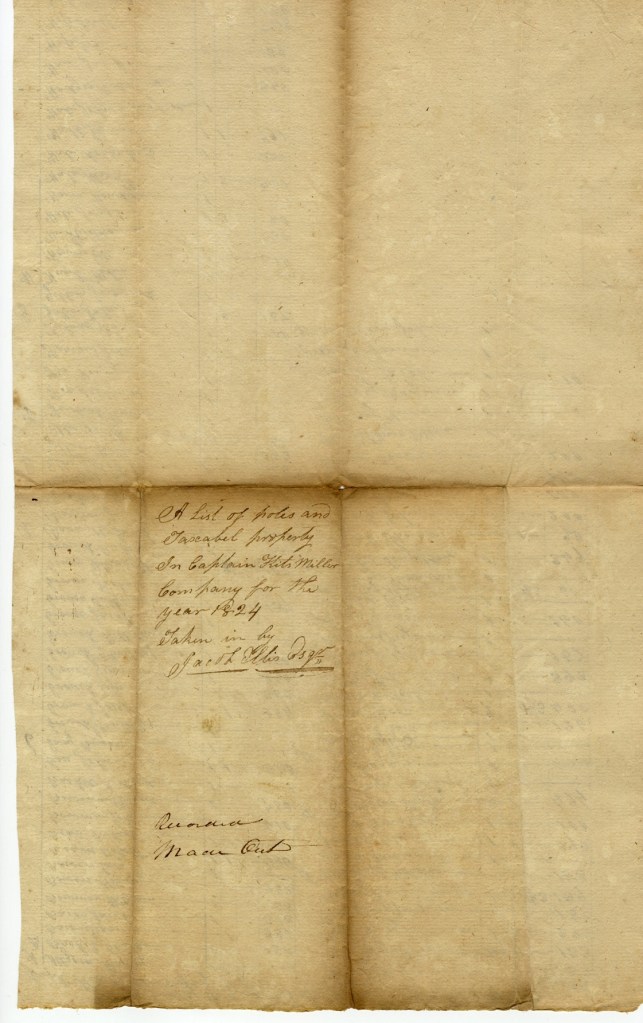 A List of poles and
Taxabel property
In Captain Kits Miller
Company for the
year 1824
Taken in by
Jacob Ellis Esqr
Recorded
Made Out